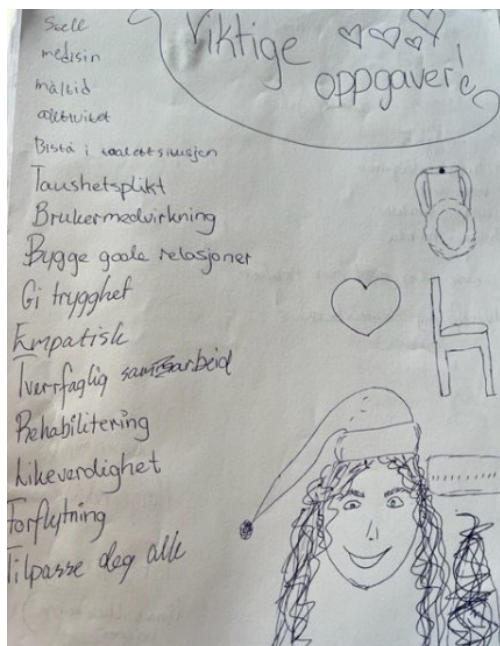 Viktige
oppgaver!
Stell
medisin
måltid
aktivitet
Bistå i toalettsitusjen
Taushetsplikt
Brukermedvirkning
Bygge gode relasjoner
Gi trygghet
Empatisk
Tverrfaglig samarbeid
Rehabilitering
Likeverdighet
Forflytning
Tilpasse deg alle